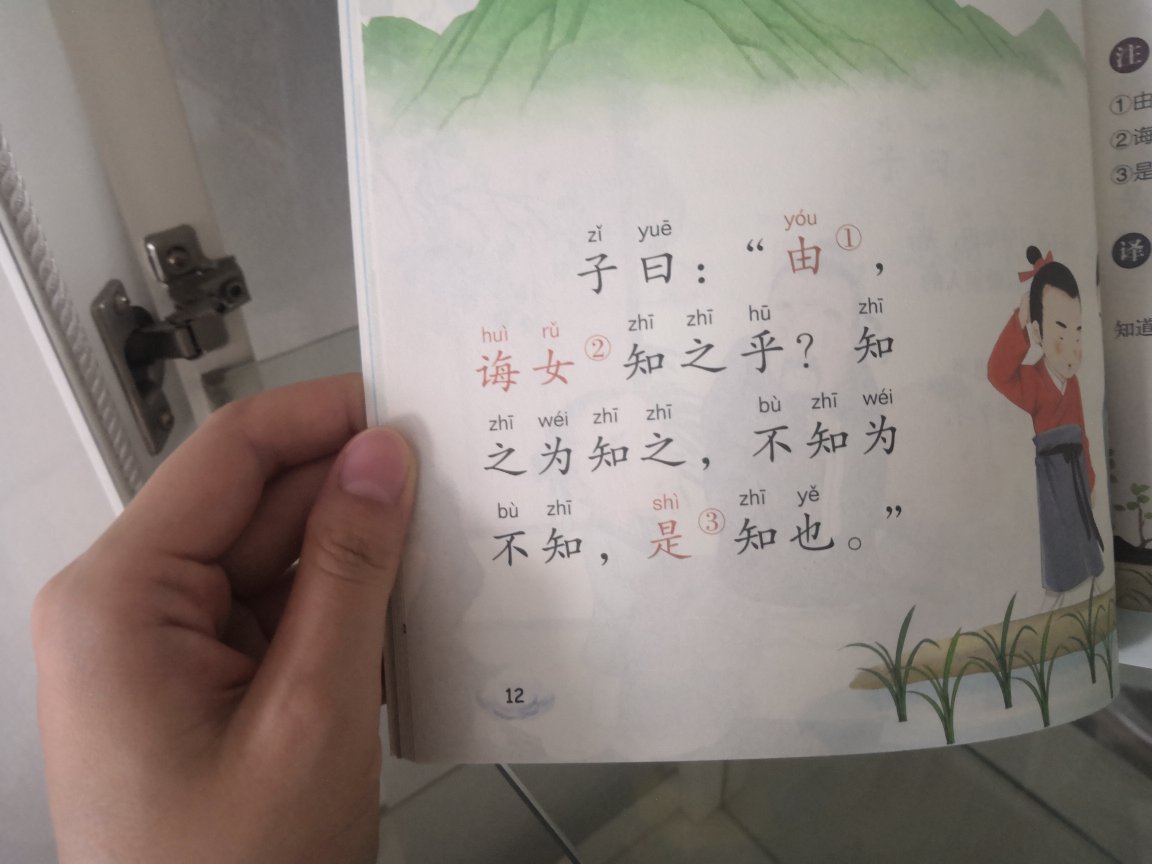 zǐ yuē yóu
子曰：“由①，
huì rǔ zhī zhī hū zhī
诲女②知之乎？知
zhī wéi zhī zhī bù zhī wéi
之为知之，不知为
bù zhī shì zhī yě
不知，是③知也。”
12
注
①由
②诲
③是
译
知道